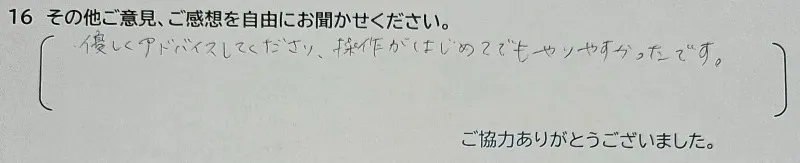 16 その他ご意見、ご感想を自由にお聞かせください。
優しくアドバイスしてくださり、操作がはじめてでもやりやすかったです。
ご協力ありがとうございました。